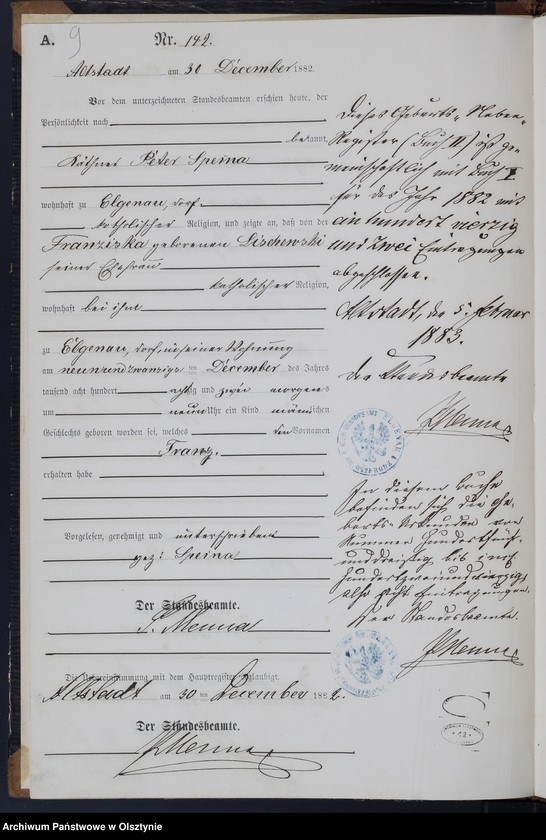 A. 9
Nr. 142.
Altstadt am 30 December 1882.
Vor dem unterzeichneten Standesbeamten erschien heute, der
Persönlichkeit nach
bekannt,
Käthner Peter Speina
wohnhaft zu Elgenau, Dorf
katholischer Religion, und zeigte an, daß von der
Franziska geborenen Lischewski
seiner Ehefrau
katholischer Religion,
wohnhaft bei ihm
zu Elgenau, Dorf in seiner Wohnung
am neunundzwanzigsten December des Jahres
tausend acht hundert achtzig und zwei morgens
um neun Uhr ein Kind männlichen
Geschlechts geboren worden sei, welches den Vornamen
Franz
erhalten habe
Vorgelesen, genehmigt und unterschrieben
gez: Speina
Der Standesbeamte.
Menna
Die Uebereinstimmung mit dem Hauptregister beglaubigt.
Altstadt am 30 ten December 1882.
Der Standesbeamte.
Menna
Dieses Geburts-Neben-
Register (Buch II) ist ge-
meinschaftlich mit Buch I
für das Jahr 1882 mit
einhundert vierzig
und zwei Eintragungen
abgeschlossen.
Altstadt, den 5. Februar
1883.
Der Standesbeamte
Menna
In diesem Buche
befinden sich die Ge-
burts-Urkunden von
Nummer hundertfünf-
unddreißig bis incl.
hundertzweiundvierzig,
also acht Eintragungen.
Der Standesbeamte.
Menna
Archiwum Państwowe w Olsztynie